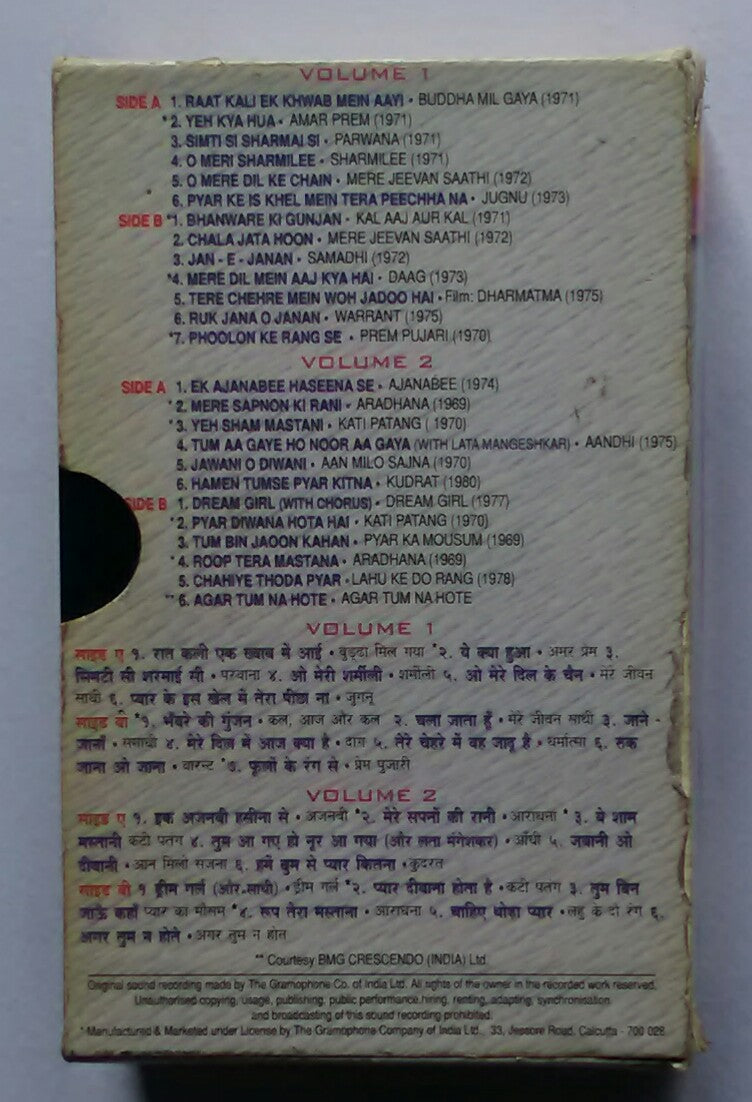 VOLUME 1
SIDE A 1. RAAT KALI EK KHWAB MEIN AAYI • BUDDHA MIL GAYA (1971)
*2. YEH KYA HUA • AMAR PREM (1971)
3. SIMTI SI SHARMAI SI • PARWANA (1971)
4. O MERI SHARMILEE • SHARMILEE (1971)
5. O MERE DIL KE CHAIN • MERE JEEVAN SAATHI (1972)
6. PYAR KE IS KHEL MEIN TERA PEECHHA NA • JUGNU (1973)
SIDE B *1. BHANWARE KI GUNJAN • KAL AAJ AUR KAL (1971)
2. CHALA JATA HOON • MERE JEEVAN SAATHI (1972)
3. JAN - E - JANAN • SAMADHI (1972)
*4. MERE DIL MEIN AAJ KYA HAI • DAAG (1973)
5. TERE CHEHRE MEIN WOH JADOO HAI • Film: DHARMATMA (1975)
6. RUK JANA O JANAN • WARRANT (1975)
*7. PHOOLON KE RANG SE • PREM PUJARI (1970)
VOLUME 2
SIDE A 1. EK AJANABEE HASEENA SE • AJANABEE (1974)
*2. MERE SAPNON KI RANI • ARADHANA (1969)
*3. YEH SHAM MASTANI • KATI PATANG ( 1970)
4. TUM AA GAYE HO NOOR AA GAYA (WITH LATA MANGESHKAR) • AANDHI (1975)
5. JAWANI O DIWANI • AAN MILO SAJNA (1970)
6. HAMEN TUMSE PYAR KITNA • KUDRAT (1980)
SIDE B 1. DREAM GIRL (WITH CHORUS) • DREAM GIRL (1977)
*2. PYAR DIWANA HOTA HAI • KATI PATANG (1970)
3. TUM BIN JAOON KAHAN • PYAR KA MOUSUM (1969)
*4. ROOP TERA MASTANA • ARADHANA (1969)
5. CHAHIYE THODA PYAR • LAHU KE DO RANG (1978)
**6. AGAR TUM NA HOTE • AGAR TUM NA HOTE
VOLUME 1
साइड ए १. रात कली एक ख्वाब में आई • बुड्ढा मिल गया *२. ये क्या हुआ • अमर प्रेम ३.
सिमटी सी शरमाई सी • परवाना ४. ओ मेरी शर्मीली • शर्मीली ५. ओ मेरे दिल के चैन • मेरे जीवन
साथी ६. प्यार के इस खेल में तेरा पीछा ना • जुगनू
साइड बी *१. भँवरे की गुंजन • कल, आज और कल २. चला जाता हूँ • मेरे जीवन साथी ३. जाने -
जानाँ • समाधी ४. मेरे दिल में आज क्या है • दाग ५. तेरे चेहरे में वह जादू है • धर्मात्मा ६. रुक
जाना ओ जाना • वारन्ट *७. फूलों के रंग से • प्रेम पुजारी
VOLUME 2
साइड ए १. इक अजनबी हसीना से • अजनबी *२. मेरे सपनों की रानी • आराधना * ३. ये शाम
मस्तानी कटी पतंग ४. तुम आ गए हो नूर आ गया (और लता मंगेशकर) • आँधी ५. जवानी ओ
दीवानी • आन मिलो सजना ६. हमें तुम से प्यार कितना • कुदरत
साइड बी १ ड्रीम गर्ल (और-साथी) • ड्रीम गर्ल *२. प्यार दीवाना होता है • कटी पतंग ३. तुम बिन
जाऊँ कहाँ प्यार का मौसम *४. रूप तेरा मस्ताना • आराधना ५. चाहिए थोड़ा प्यार • लहु के दो रंग ६.
अगर तुम न होते • अगर तुम न होते
** Courtesy BMG CRESCENDO (INDIA) Ltd
Original sound recording made by The Gramophone Co. of India Ltd. All rights of the owner in the recorded work reserved.
Unauthorised copying, usage, publishing, public performance, hiring, renting, adapting, synchronisation
and broadcasting of this sound recording prohibited.
* Manufactured & Marketed under License by The Gramophone Company of India Ltd., 33, Jessore Road, Calcutta - 700 028